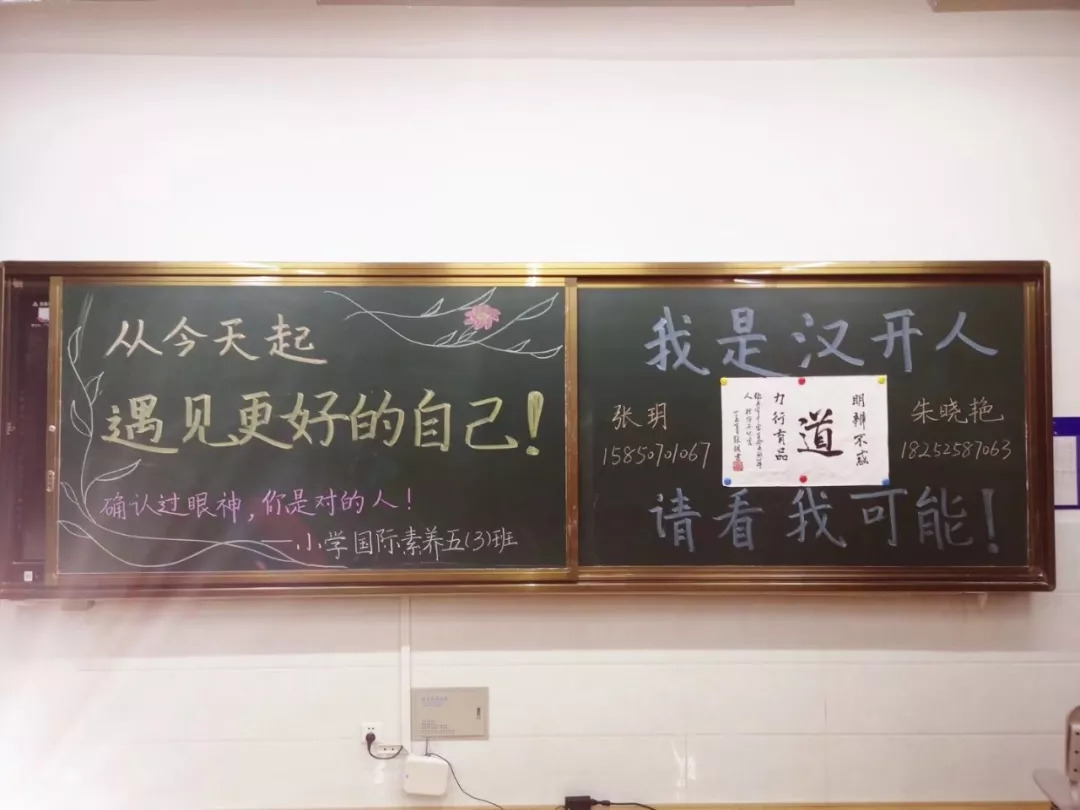 从今天起
遇见更好的自己!
确认过眼神,你是对的人!
——小学国际素养五(3)班
我是汉开人
张玥
15850701067
明辨不惑
道
力行育品
朱晓艳
18252587063
请看我可能!